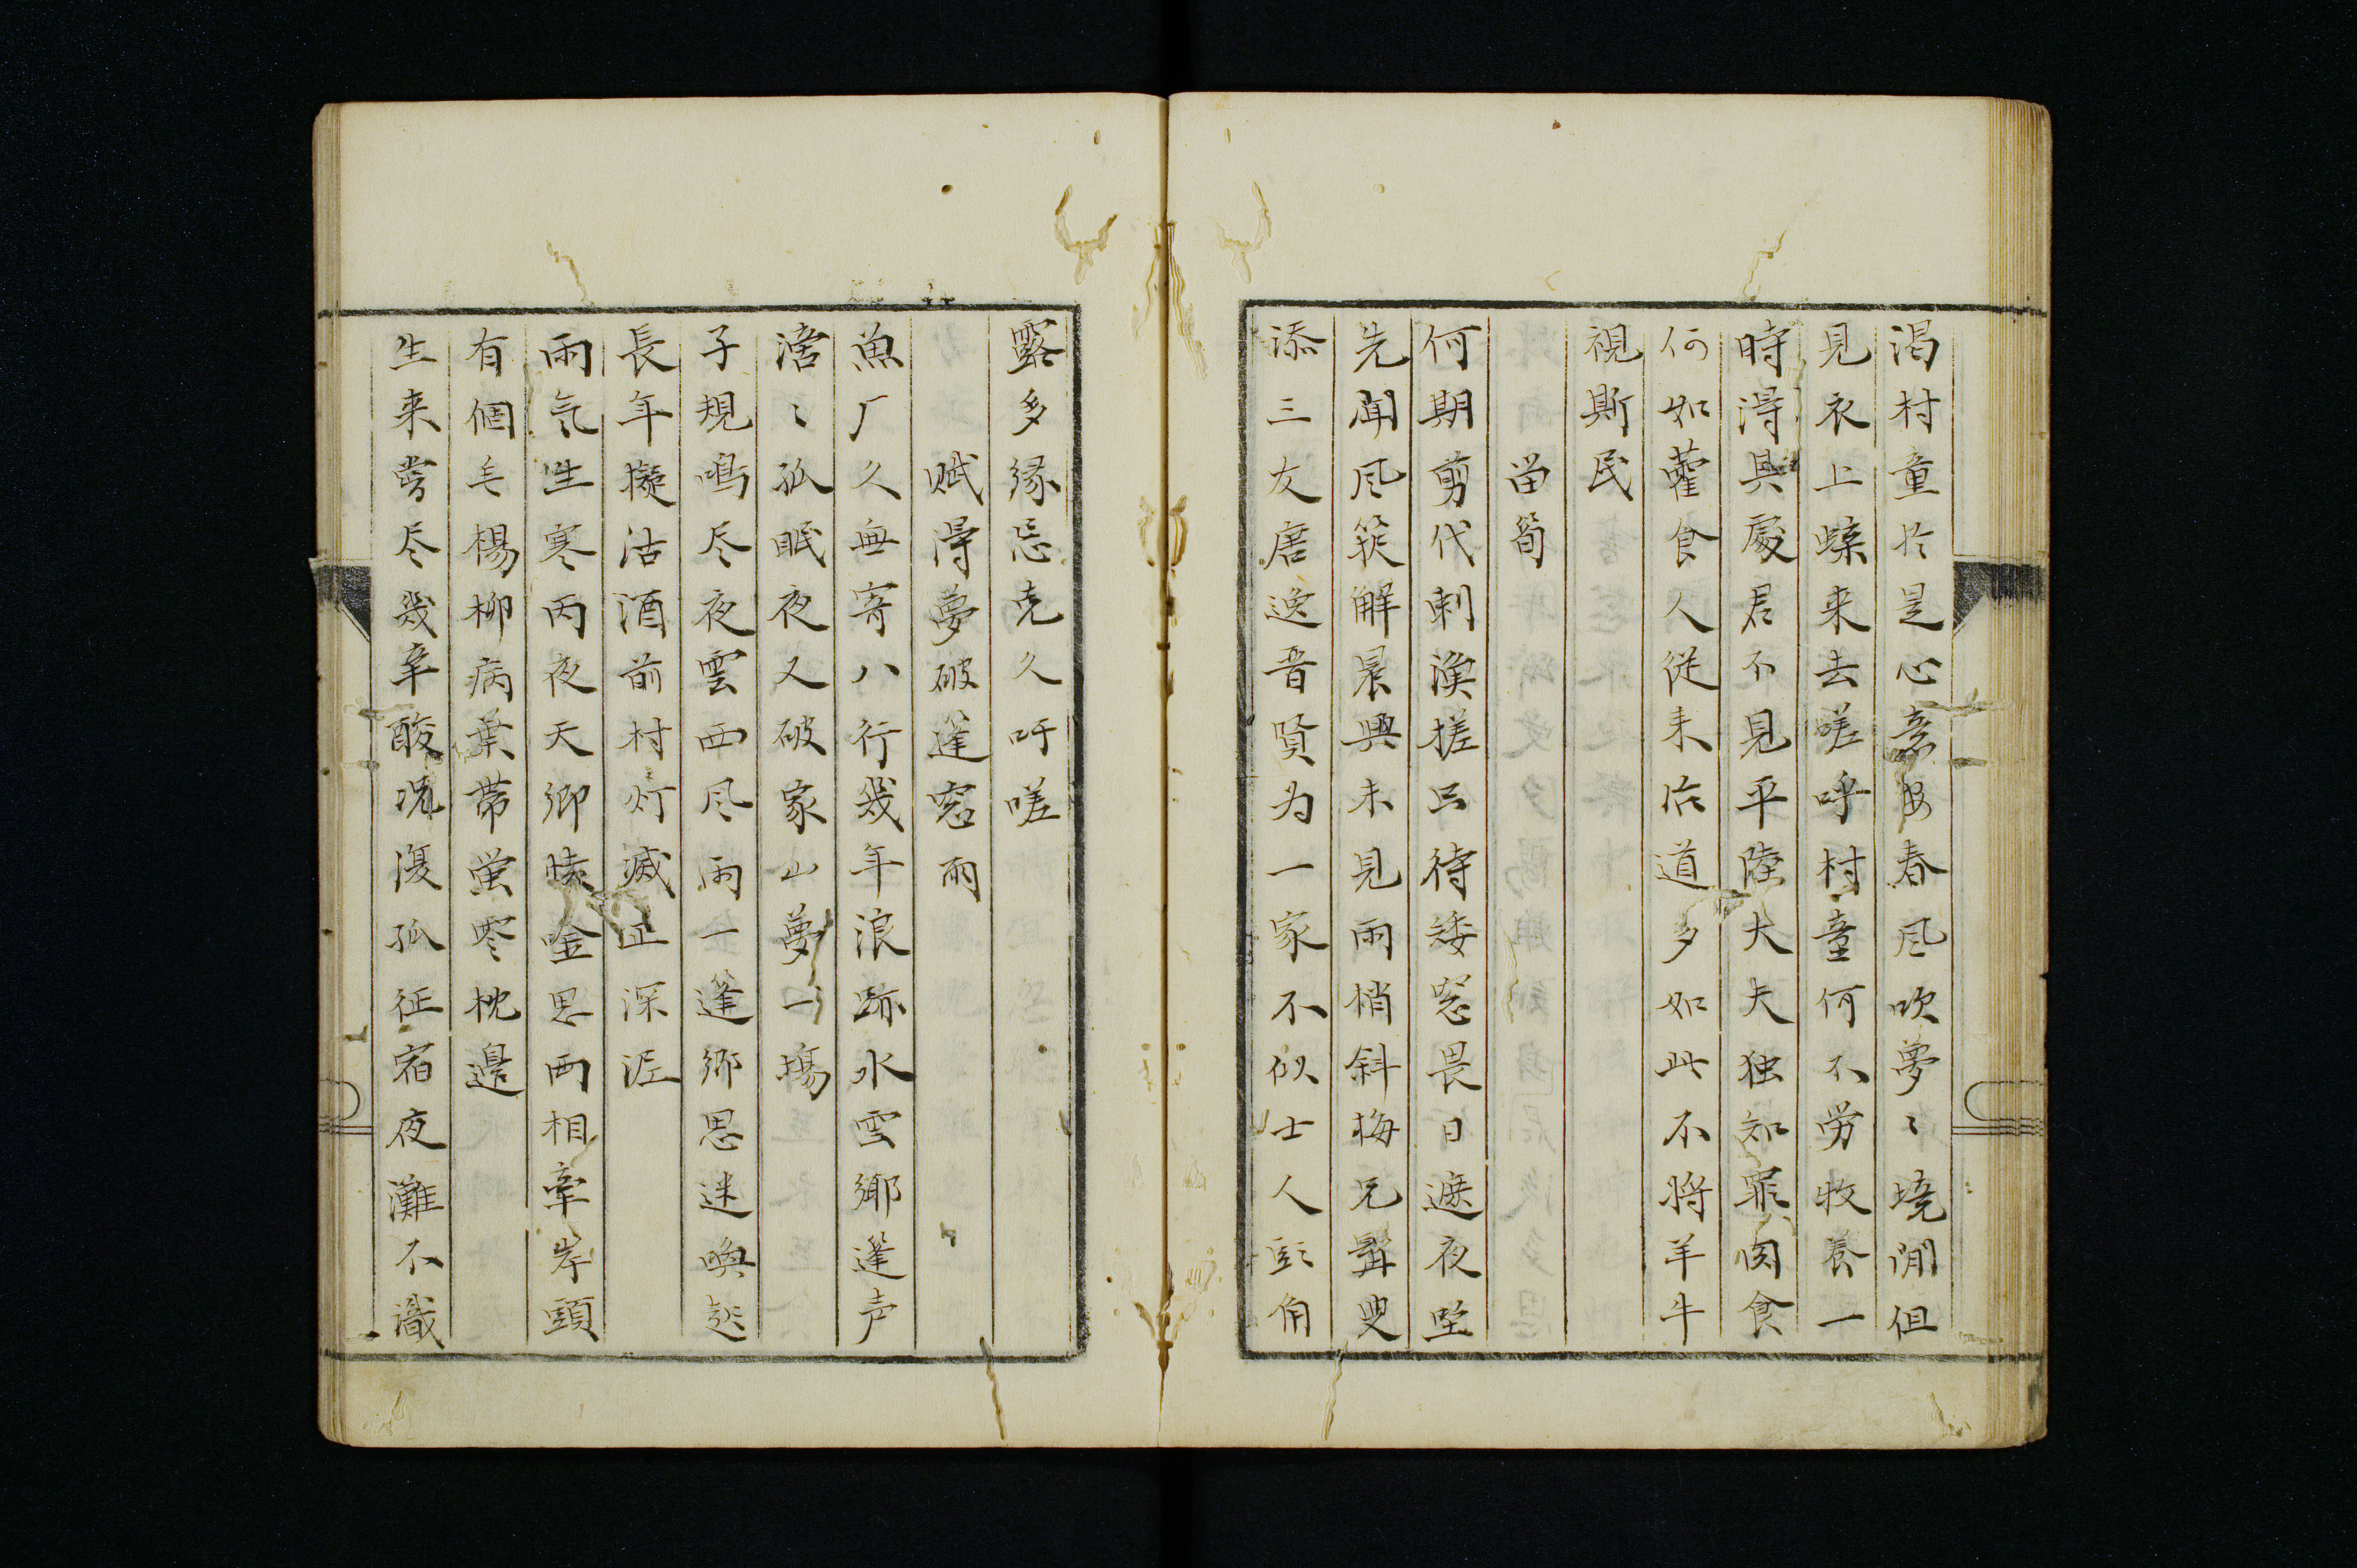 渇村童於是心意安春风吹夢〻境閒但
見衣上蝶来去嗟呼村童何不労牧养一
時得其處君不見平陸大夫独知罪肉食
何如藿食人従来治道多如此不将羊牛
視斯民
留筍
何期剪代刺渓槎只待矮窓畏日遮夜坐
先聞风箨解晨興未見雨梢斜梅兄礬叟
添三友唐逸晋賢为一家不似士人頭角
露多緣忘克久吁嗟
賦得夢破蓬窓雨
魚厂久無寄八行幾年浪跡水雲郷蓬声
滴〻孤眠夜又破家山夢一場
子規鳴尽夜雲西风雨一蓬郷思迷喚起
長年擬沽酒前村灯滅正深泥
雨気生寒丙夜天郷情吟思両相牽岸頭
有個毛楊柳病葉帯蛍零枕邊
生来嘗尽幾辛酸况復孤征宿夜灘不識